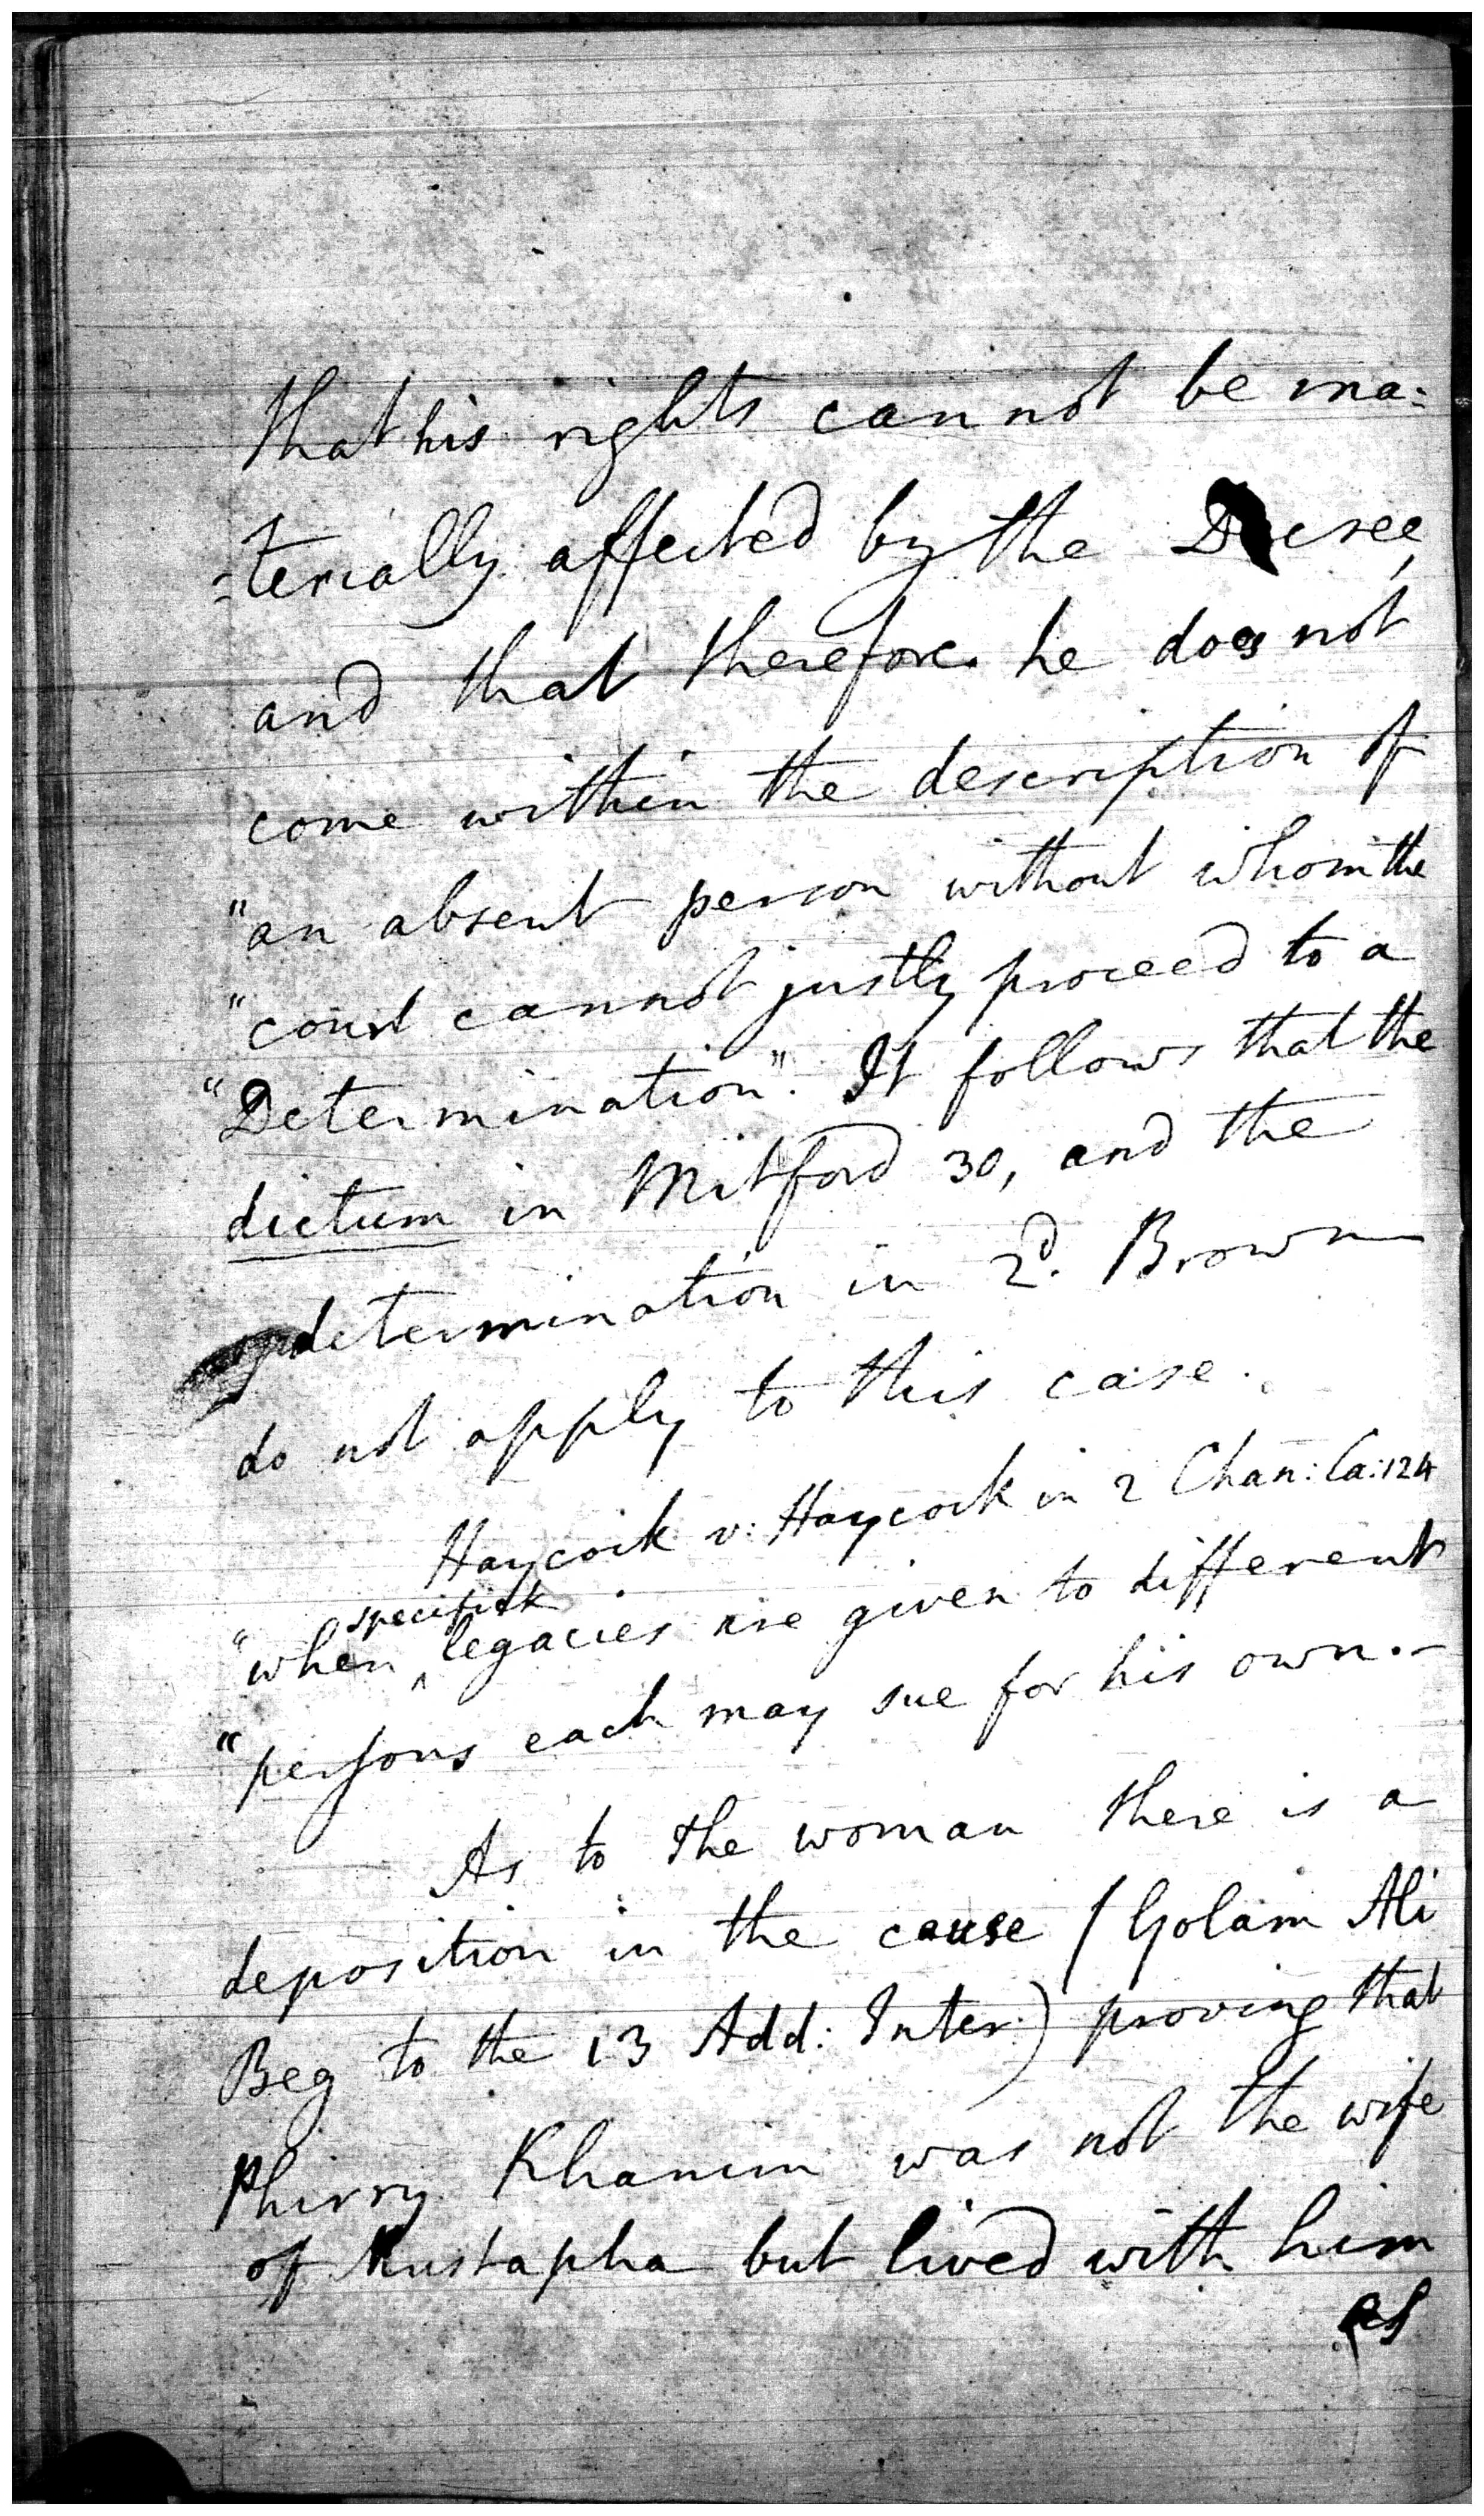 that his rights cannot be ma:
:terially affected by the Decree,
and that therefore he does not
come within the description of
"an absent person without whom the
"court cannot justly proceed to a
"Determination". It follows that the
dictum in Mitford 30, and the
determination in 2d. Brown
do not apply to this case.
Haycock v: Haycock in 2 Chan: Ca: 124
specifick
"when ^ legacies are given to different
"persons each may sue for his own.-
As to the woman there is a
deposition in the cause (Golam Ali
Beg to the 13 Add: Inter:) proving that
Phirry Khanim was not the wife
of Mustapha but lived with him
as